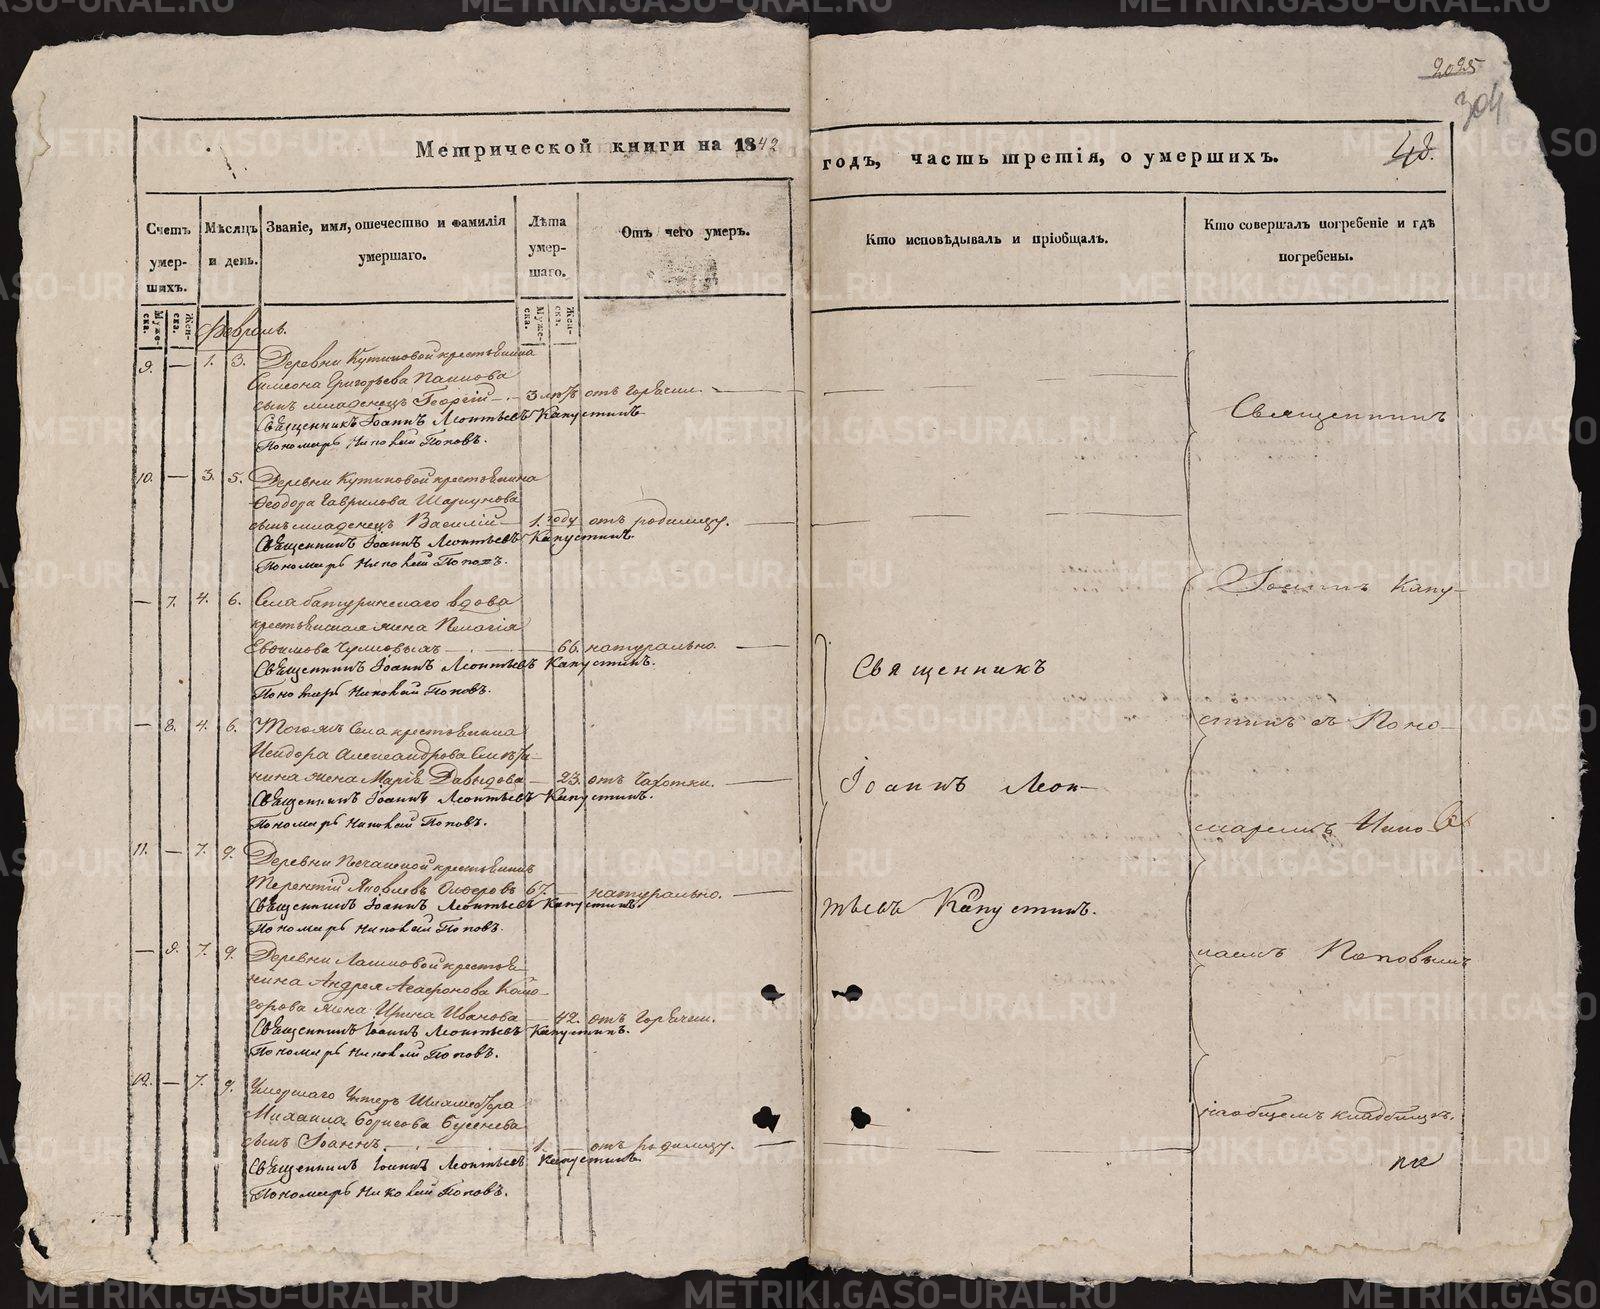 2025
304
Метрической книги на 1842
годъ, часть третія, о умершихъ.
48.
Счетъ умер-шихъ.
Мѣсяцъ и день.
Званіе, имя, отечество и фамилія умершаго.
Лѣта умер-шаго.
Отъ чего умеръ.
Кто исповѣдывалъ и пріобщалъ.
Кто совершалъ погребеніе и гдѣ погребены.
Муже-ска.
Жен-ска.
Муже-ска.
Жен-ска.
Февраль.
9. — 1. 3. Деревни крестьянина
Симеона Григорьева
сынъ младенецъ Георгій — 3 отъ горячки.
Священникъ Іоаннъ Леонтьевъ Капустинъ
Пономарь Николай Поповъ.
10. — 3. 5. Деревни крестьянина
Ѳеодора Гаврилова
сынъ младенецъ Василій — 1. году отъ родимцу.
Священникъ Іоаннъ Леонтьевъ Капустинъ.
Пономарь Николай Поповъ.
— 7. 4. 6. Села Батуринскаго вдова
крестьянская жена Пелагія
66. натурально.
Священникъ Іоаннъ Леонтьевъ Капустинъ.
Пономарь Николай Поповъ.
— 8. 4. 6. Тогожъ села крестьянина
Исидора Александрова
жена Марія Давыдова — 23. отъ чахотки.
Священникъ Іоаннъ Леонтьевъ Капустинъ.
Пономарь Николай Поповъ.
11. — 7. 9. Деревни крестьянинъ
Терентій Яковлевъ 67. — натурально.
Священникъ Іоаннъ Леонтьевъ Капустинъ.
Пономарь Николай Поповъ.
— 9. 7. 9. Деревни крестья-
нина Андрея Агафонова
жена Ирина Иванова — 42. отъ горячки.
Священникъ Іоаннъ Леонтьевъ Капустинъ.
Пономарь Николай Поповъ.
12. — 7. 9. Умершаго
Михаила Борисова
сынъ Іоаннъ. 1. — отъ родимцу.
Священникъ Іоаннъ Леонтьевъ Капустинъ.
Пономарь Николай Поповъ.
Священникъ
Іоаннъ Леон-
тьевъ Капустинъ.
Священникъ
Іоаннъ Капу-
стинъ съ Поно-
маремъ Нико
лаемъ Поповымъ
на общемъ кладбищѣ.
METRIKI.GASO-URAL.RU